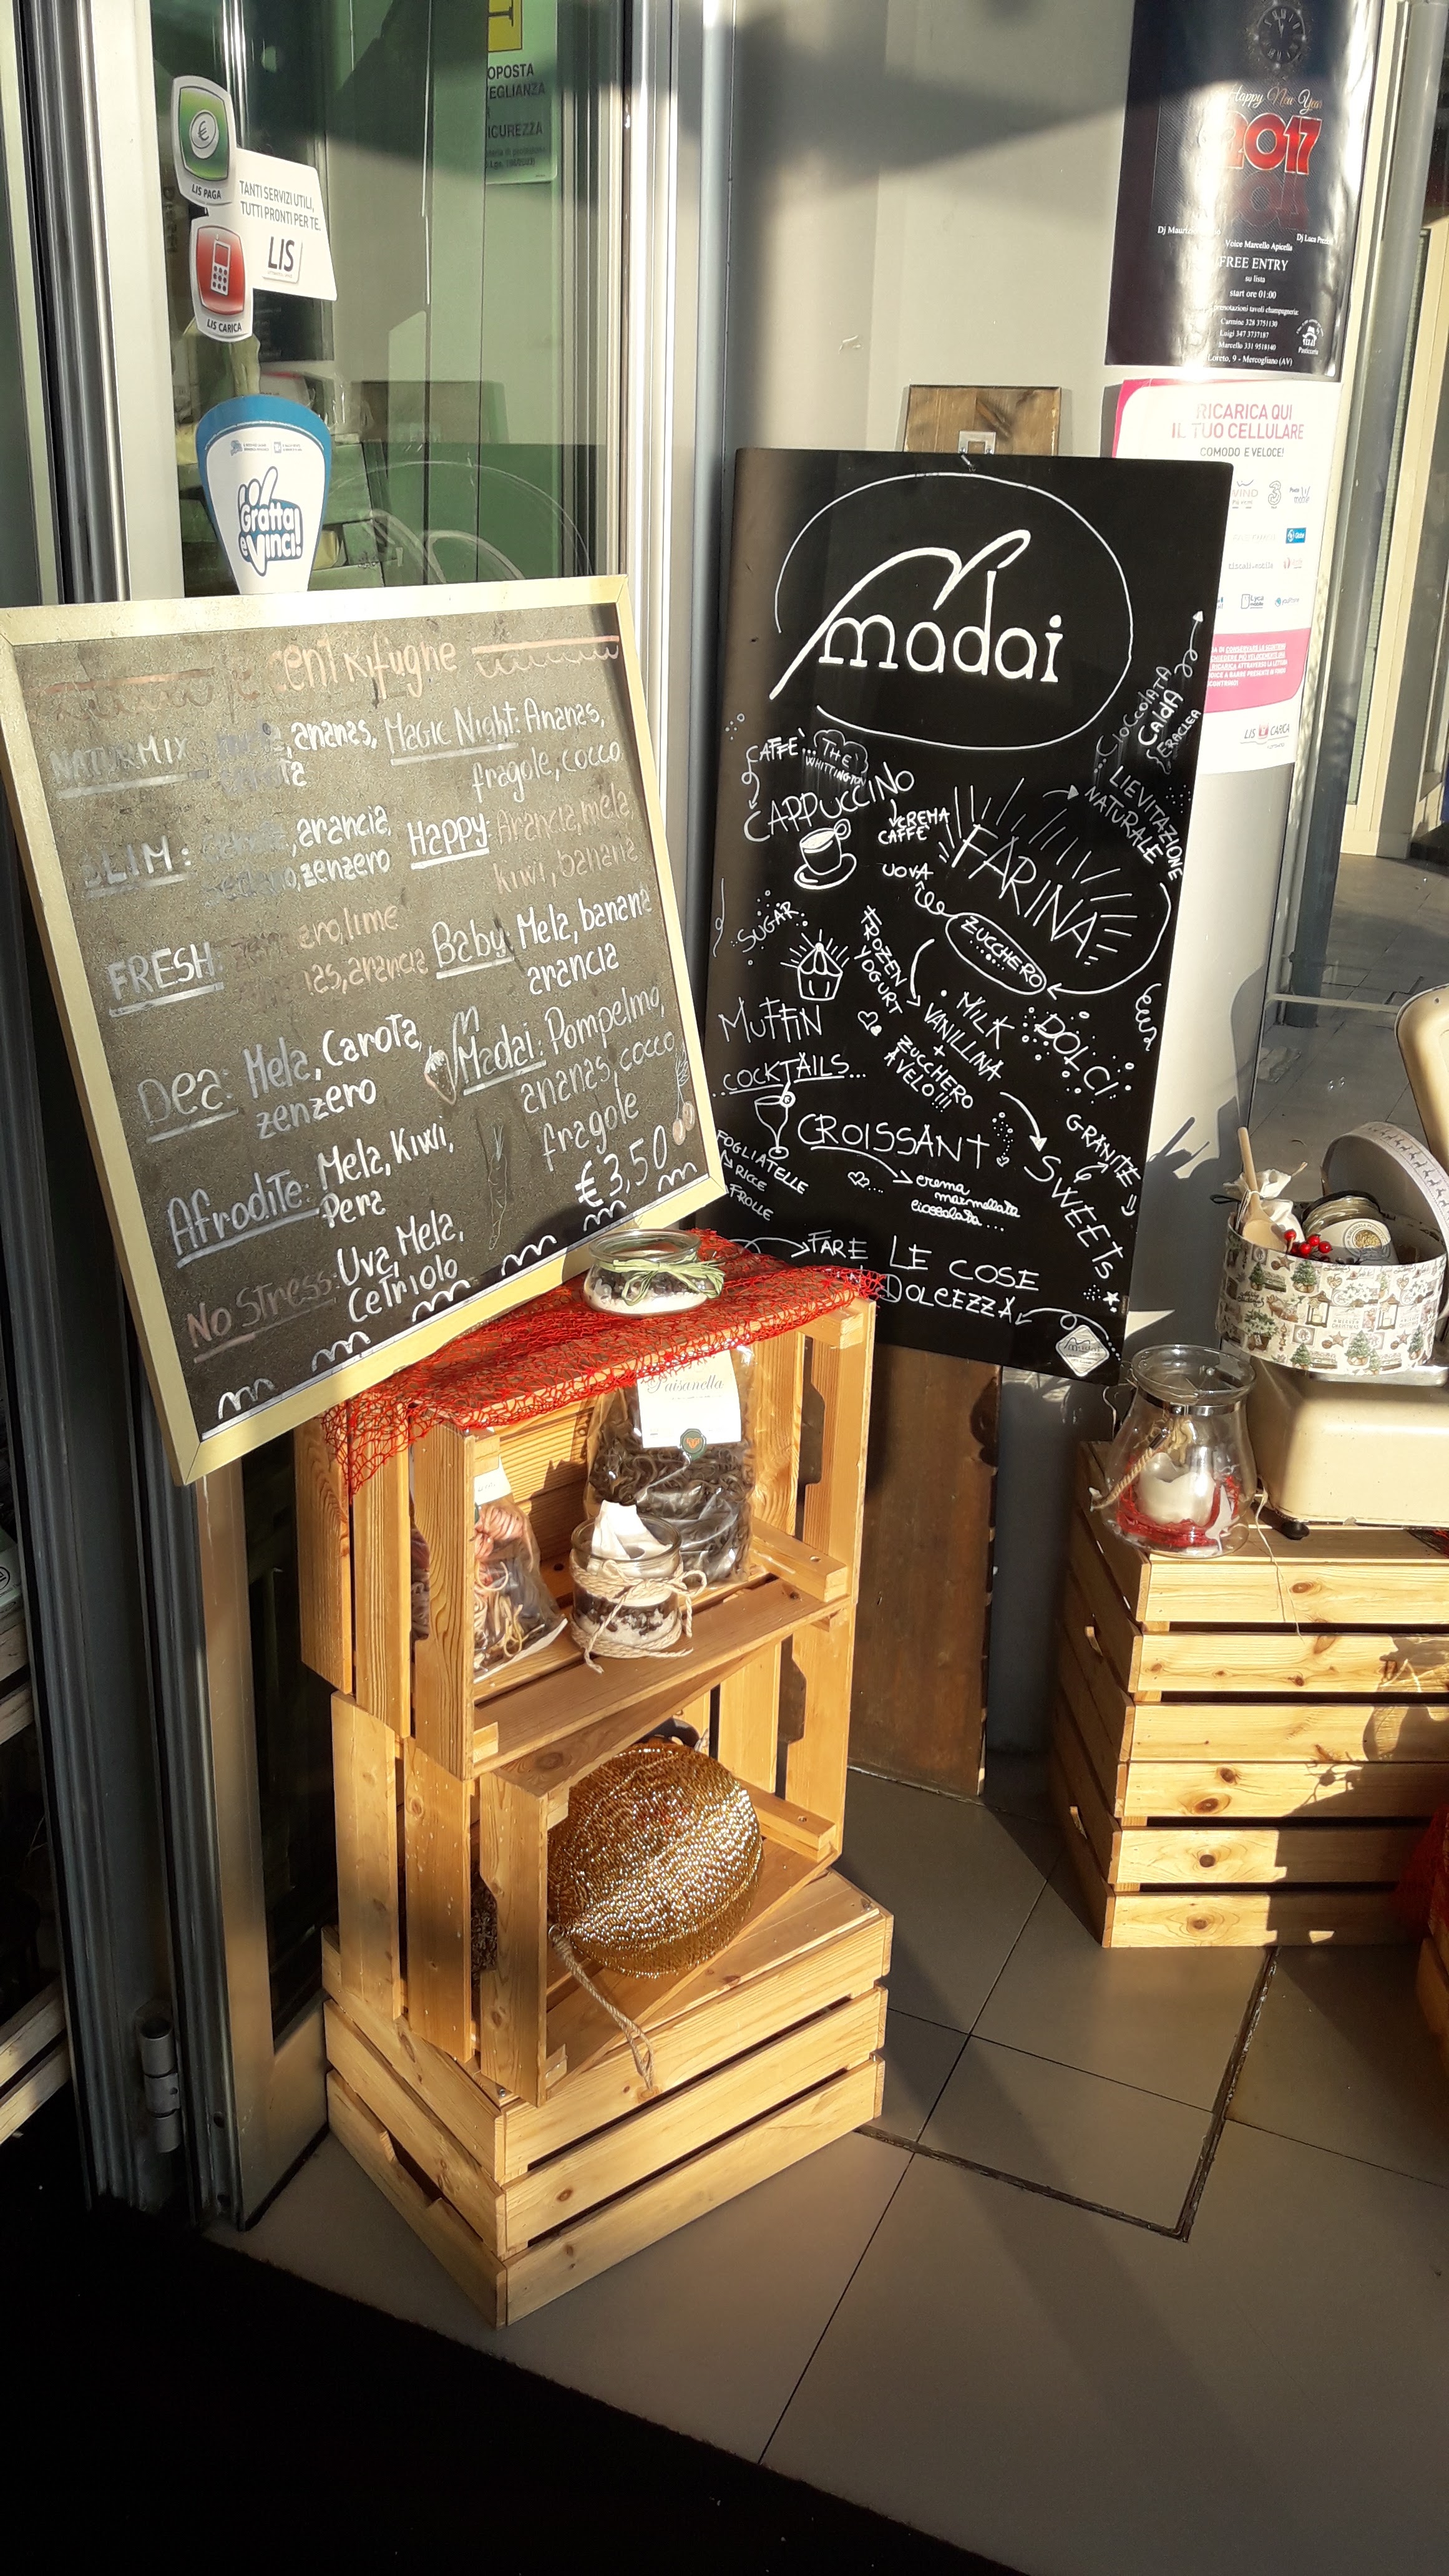 OPOSTA
EGLIANZA
ICUREZZA
LIS PAGA
TANTI SERVIZI UTILI,
TUTTI PRONTI PER TE.
LIS
LIS CARICA
Gratta
e Vinci!
Happy New Year
2017
Voice Marcello Apicella
FREE ENTRY
su lista
start ore 01:00
Carmine 328 3751130
Luigi 347 3737187
Marcello 331 9518140
Loreto, 9 - Mercogliano (AV)
Pasticceria
RICARICA QUI
IL TUO CELLULARE
COMODO E VELOCE!
WIND
3
LIS CARICA
centrifughe
NATURMIX ananas,
SLIM: arancia,
zenzero
FRESH: lime
arancia
Dea: Mela, Carota,
zenzero
Afrodite: Mela, Kiwi,
Pera
No Stress: Uva, Mela,
Cetriolo
Magic Night: Ananas,
fragole, cocco
Happy: Arancia, mela
kiwi, banana
Baby: Mela, banana
arancia
Madai: Pompelmo,
ananas, cocco
fragole
€ 3,50
madai
CAFFE'
THE
WHITTINGTON
CAPPUCCINO
CREMA
CAFFE'
CIOCCOLATA
CALDA
ERACLEA
LIEVITAZIONE
NATURALE
FARINA
UOVA
ZUCCHERO
SUGAR
#FROZEN
YOGURT
MUFFIN
MILK
DOLCI
VANILLINA
+
ZUCCHERO
A VELO!!!
COCKTAILS...
CROISSANT
crema
marmellata
cioccolata...
GRANITE
SWEETS
SFOGLIATELLE
RICCE
FROLLE
FARE LE COSE
DOLCEZZA
Paisanella